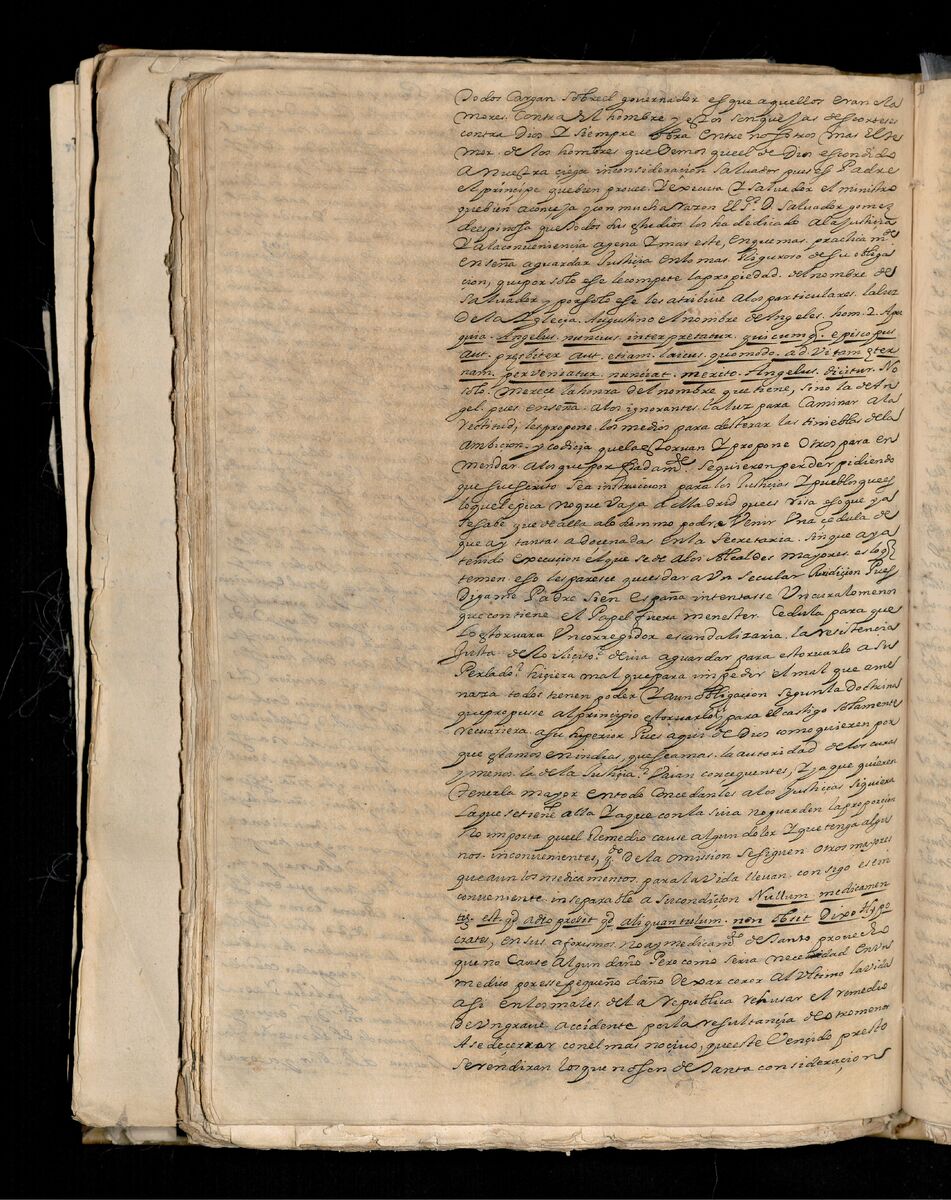 todos cargan sobre el governador es que aquellos eran cla
mores. Contra el hombre y estos son quejas de corteses
contra Dios Y siempre obra entre nosotros mas el te
mor. de los hombres que Vemos que el de Dios escondido
a nuestra ciega inconsideracion Salvador pues es Padre
el principe que bien provee. Y executa Y salvador el ministro
que bien aconseja y con mucha razon El Sr. D. Salvador gomez
de espinosa que todos sus estudios los ha dedicado a la justicia
Y a la conveniencia agena Y mas este, en que mas. practica mte
enseña a guardar Justicia en lo mas. Riguroso de su obliga
cion, que por solo esse le compete la propiedad. del nombre de
salvador y por solo esse les atribuie a los particulares. la luz
de la Yglecia. Augustino el nombre de Angeles. hom. 2. Apo
quia. Angelus. nuncius interpretatur. quicumq. episcopus
aut. presbiter aut. etiam. laicus. quomodo. ad. vitam eter
nam. perveniatur. nunciat. merito. Angelus. dicitur. No
solo. Merece la honra del nombre que tiene, sino la de An
gel. pues enseña. a los ignorantes. la luz para Caminar a la
rectitud; les propone. los medios para desterrar las tinieblas de la
Ambicion. y codicia que la estorvan Y propone Otros para en
mendar a los que por seguieron perder pidiendo
que su escrito sea instruccion para los Justicias Y pueblo que es
lo que replica no que Vaya a Madrid que es risa eso que ya
se sabe que de alla a lo demmo podra Venir Una cedula de
que ay tantas adocenadas en la Secretaria. sin que aya
tenido execucion el que se de a los Alcaldes mayores. es lo q
temen eso les parese que es dar a Un secular Juridicion Pues
digame Padre si en España intentasse Un cura lo menos
que contiene el Papel fuera menester. Cedula para que
lo estorvara Un corregidor escandalizaria. la resistencia
Justa. de lo ilicito. devia aguardar para estorvarlo a su
Perlado? hisiera mal que para impedir el mal que ame
nasa todos tienen poder Y aun obligacion segun la doctrina
que propusse al principio estorvarlo; para el castigo solamente
recurriera. a su superior Pues aqui de Dios como quieren por
que estamos en indias, que sea mas. la autoridad de los curas
y menos. la de la Justicia? Vaian consequentes; Y ya que quieren
tenerla mayor en todo Concedanles a los Justicias siquiera
la que se tiene alla Y aque con la suia no guarden la proporcion
No importa que el Remedio cause algun dolor Y que tenga algu
nos. inconvenientes, qdo de la omission se siguen otros mayores
que aun los medicamentos. para la Vida llevan. consigo es in
conveniente. inseparable a su condicion Nullum medicamen
tum. est. qd. adeo prosit qd. aliquantulum. non obsit Dixo Hypo
crates, en sus aforismos. no ay medicamto. de tanto provecho
que no Cause Algun daño Pero como seria necesidad en Un
medico por esse pequeño daño dexar coror Al Ultimo la vida
asi en los males. de la Republica rehusar el remedio
de Un grave accidente por la resultancia de otro menor
A se de cerrar con el mas nocivo, que este Vencido presto
se rendiran los que no son de tanta consideracion